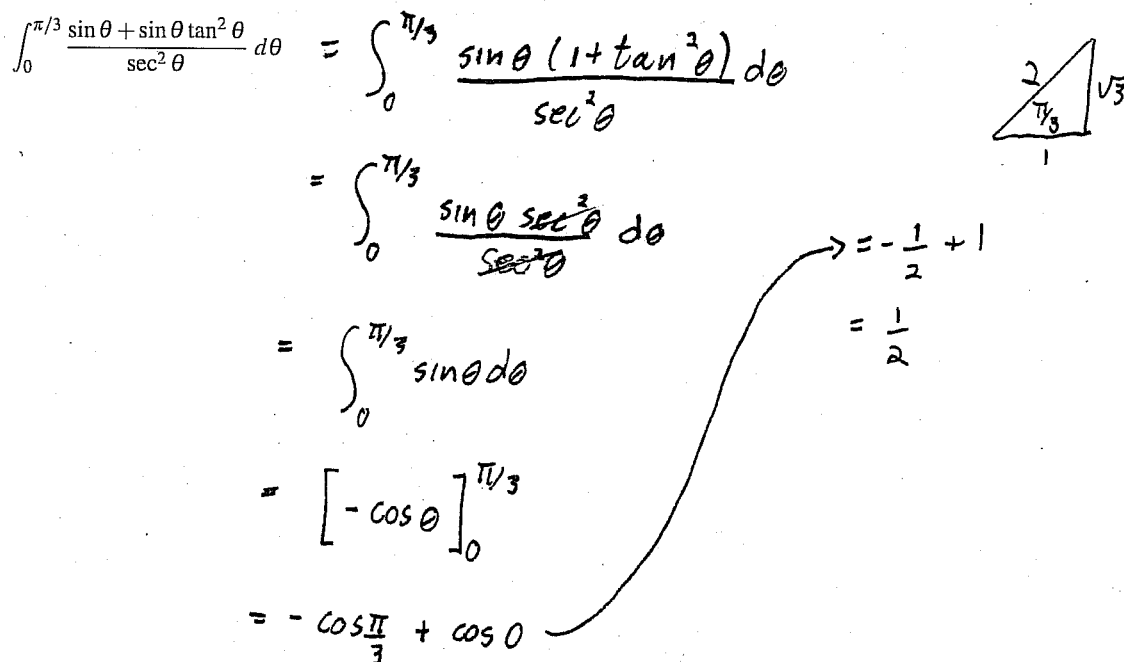 ∫₀^{π/3} (sin θ + sin θ tan² θ)/(sec² θ) dθ = ∫₀^{π/3} (sin θ (1 + tan² θ))/(sec² θ) dθ
2 √3 π/3 1
= ∫₀^{π/3} (sin θ sec² θ)/(sec² θ) dθ
= ∫₀^{π/3} sin θ dθ
= [-cos θ]₀^{π/3}
= - cos π/3 + cos 0
→ = - 1/2 + 1
= 1/2